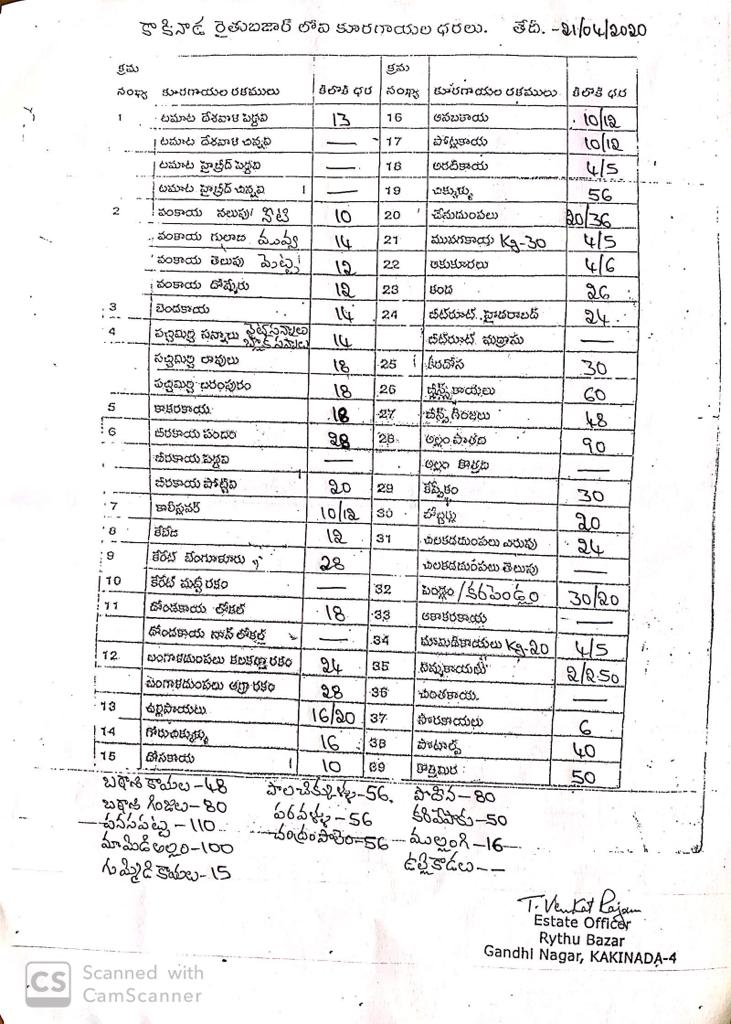 కాకినాడ రైతుబజార్ లోని కూరగాయల ధరలు. తేదీ.-21/04/2020
క్రమ సంఖ్య కూరగాయల రకములు కిలోకి ధర క్రమ సంఖ్య కూరగాయల రకములు కిలోకి ధర
1 టమాట దేశవాళి పెద్దవి 13 16 ఆనబకాయ 10/12
టమాట దేశవాళి చిన్నవి — 17 పోట్లకాయ 10/12
టమాట హైబ్రీడ్ పెద్దవి — 18 అరటికాయ 4/5
టమాట హైబ్రీడ్ చిన్నవి — 19 చిక్కుళ్ళు 56
2 వంకాయ నలుపు/ నీటి 10 20 చేనుదుంపలు 20/36
వంకాయ గులాబి మువ్వ 14 21 మునగకాయ Kg-30 4/5
వంకాయ తెలుపు మెట్ట 12 22 ఆకుకూరలు 4/6
వంకాయ దోమ్మేరు 12 23 కంద 26
3 బెండకాయ 14 24 బీట్‌రూట్ హైదరాబాద్ 24
4 పచ్చిమిర్చి సన్నాలు 14 బీట్‌రూట్ మద్రాసు —
పచ్చిమిర్చి రావులు 18 25 కీరదోస 30
పచ్చిమిర్చి బరంపురం 18 26 బీన్స్‌కాయలు 60
5 కాకరకాయ 18 27 బీన్స్ గింజలు 48
6 బీరకాయ పందిరి 28 28 అల్లం పాతది 90
బీరకాయ పెద్దవి — అల్లం కొత్తది —
బీరకాయ పోట్టివి 20 29 కేప్సికం 30
7 కాలీఫ్లవర్ 10/12 30 బొబ్బర్లు 20
8 కేబేజి 12 31 చిలకడదుంపలు ఎరుపు 24
9 కేరేట్ బెంగుళూరు 28 చిలకడదుంపలు తెలుపు —
10 కేరేట్ మద్వీ రకం — 32 పెండ్లం/కర్రపెండ్లం 30/20
11 దోండకాయ లోకల్ 18 33 ఆకాకరకాయ —
దోండకాయ నాన్ లోకల్ — 34 మామిడికాయలు Kg-20 4/5
12 బంగాళదుంపలు కలకత్తా రకం 24 35 నిమ్మకాయలు 2/2.50
బంగాళదుంపలు ఆగ్రా రకం 28 36 చింతకాయ —
13 ఉల్లిపాయలు 16/20 37 సొరకాయలు 6
14 గోరుచిక్కుళ్ళు 16 38 పొటాల్స్ 40
15 దోసకాయ 10 39 కొత్తిమిర 50
బఠాణి కాయల-48 పాల చిక్కుళ్ళు-56. పొదిన-80
బఠాణి గింజల-80 పరవళ్ళు-56 కరివేపాకు-50
పనసపట్టు-110 చంద్రంపాలెం-56 ముల్లంగి-16
మామిడి అల్లం-100 ఉల్లికాడలు--
గుమ్మిడి కాయల-15
T. Venkat Rajam
Estate Officer
Rythu Bazar
Gandhi Nagar, KAKINADA-4
CS Scanned with
CamScanner